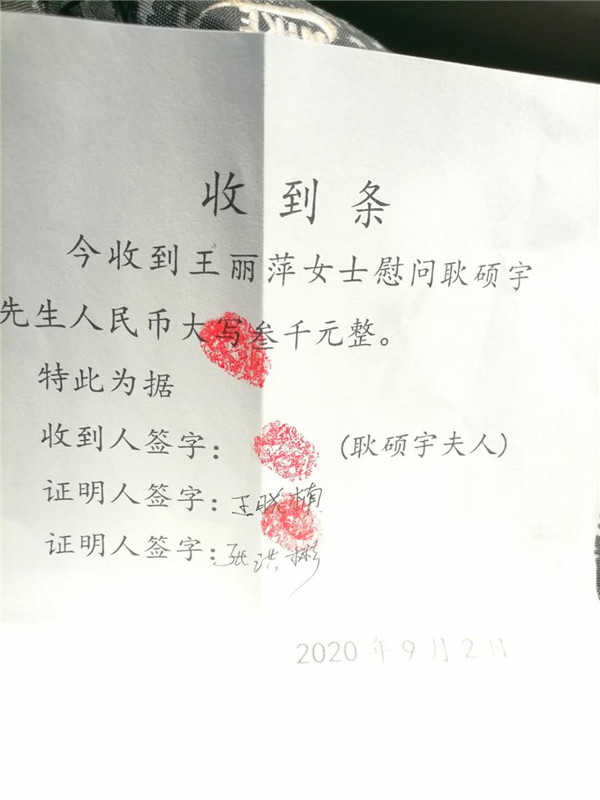 收到条
今收到王丽萍女士慰问耿硕宇
先生人民币大写叁千元整。
特此为据
收到人签字： (耿硕宇夫人)
证明人签字：王晓楠
证明人签字：张洪彬
2020年9月2日